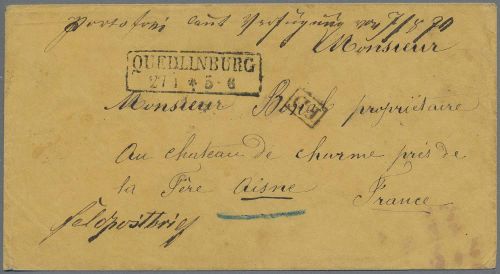 Portofrei laut Verfügung vom 7/8 70
Monsieur
QUEDLINBURG
27 1 * 5-6
Monsieur propriétaire
Au chateau de charme près de
la Fère Aisne France
Feldpostbrief